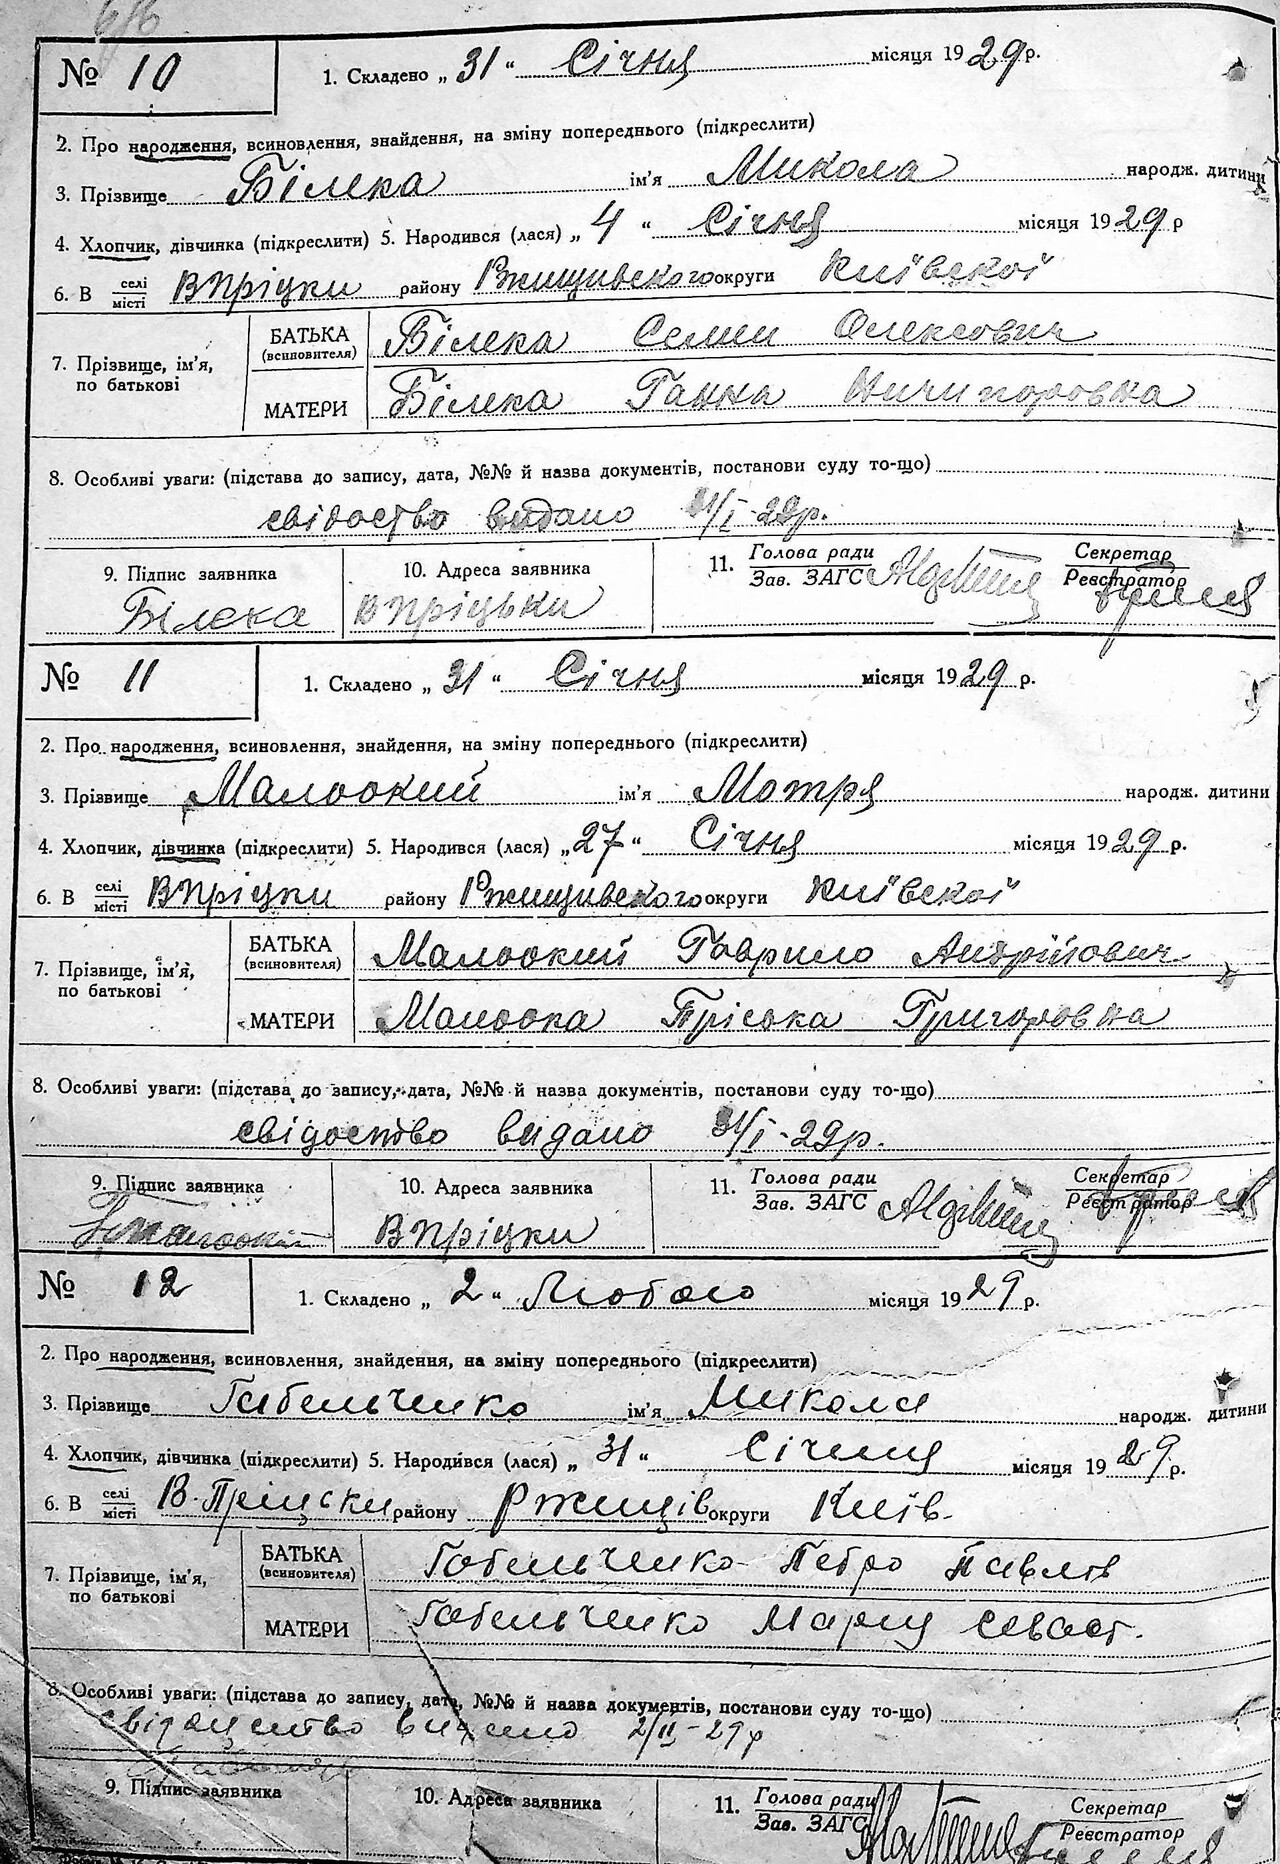 № 10
1. Складено „ 31 “ Січня місяця 1929 р.
2. Про народження, всиновлення, знайдення, на зміну попереднього (підкреслити)
3. Прізвище Білека ім'я Микола народж. дитини
4. Хлопчик, дівчинка (підкреслити) 5. Народився (лася) „ 4 “ Січня місяця 1929 р
6. В селі місті ВПріцки району Ржищивского округи Київскої
7. Прізвище, ім'я, по батькові
БАТЬКА (всиновителя) Білека Семен Олексович
МАТЕРИ Білека Ганна Ничипоровна
8. Особливі уваги: (підстава до запису, дата, №№ й назва документів, постанови суду то-що)
свідоство видано 31/I-29р.
9. Підпис заявника
Білека
10. Адреса заявника
ВПріцьки
11. Голова ради Зав. ЗАГС
Секретар Реєстратор
№ 11
1. Складено „ 31 “ Січня місяця 1929 р.
2. Про народження, всиновлення, знайдення, на зміну попереднього (підкреслити)
3. Прізвище Малоокий ім'я Мотря народж. дитини
4. Хлопчик, дівчинка (підкреслити) 5. Народився (лася) „ 27 “ Січня місяця 1929 р.
6. В селі місті ВПріцки району Ржищивского округи Київскої
7. Прізвище, ім'я, по батькові
БАТЬКА (всиновителя) Малоокий Гаврило Андрійович
МАТЕРИ Малоока Пріська Григоровна
8. Особливі уваги: (підстава до запису, дата, №№ й назва документів, постанови суду то-що)
свідоство видано 31/I-29р.
9. Підпис заявника
10. Адреса заявника
ВПріцки
11. Голова ради Зав. ЗАГС
Секретар Реєстратор
№ 12
1. Складено „ 2 “ Лютого місяця 1929 р.
2. Про народження, всиновлення, знайдення, на зміну попереднього (підкреслити)
3. Прізвище Габельченко ім'я Микола народж. дитини
4. Хлопчик, дівчинка (підкреслити) 5. Народився (лася) „ 31 “ Січеня місяця 1929 р.
6. В селі місті В. Пріцьки району Ржищів округи Київ.
7. Прізвище, ім'я, по батькові
БАТЬКА (всиновителя) Габельченко Петро Павлів
МАТЕРИ Габельченко Мария Севаст.
8. Особливі уваги: (підстава до запису, дата, №№ й назва документів, постанови суду то-що)
видано 2/II-29р
9. Підпис заявника
10. Адреса заявника
11. Голова ради Зав. ЗАГС
Секретар Реєстратор